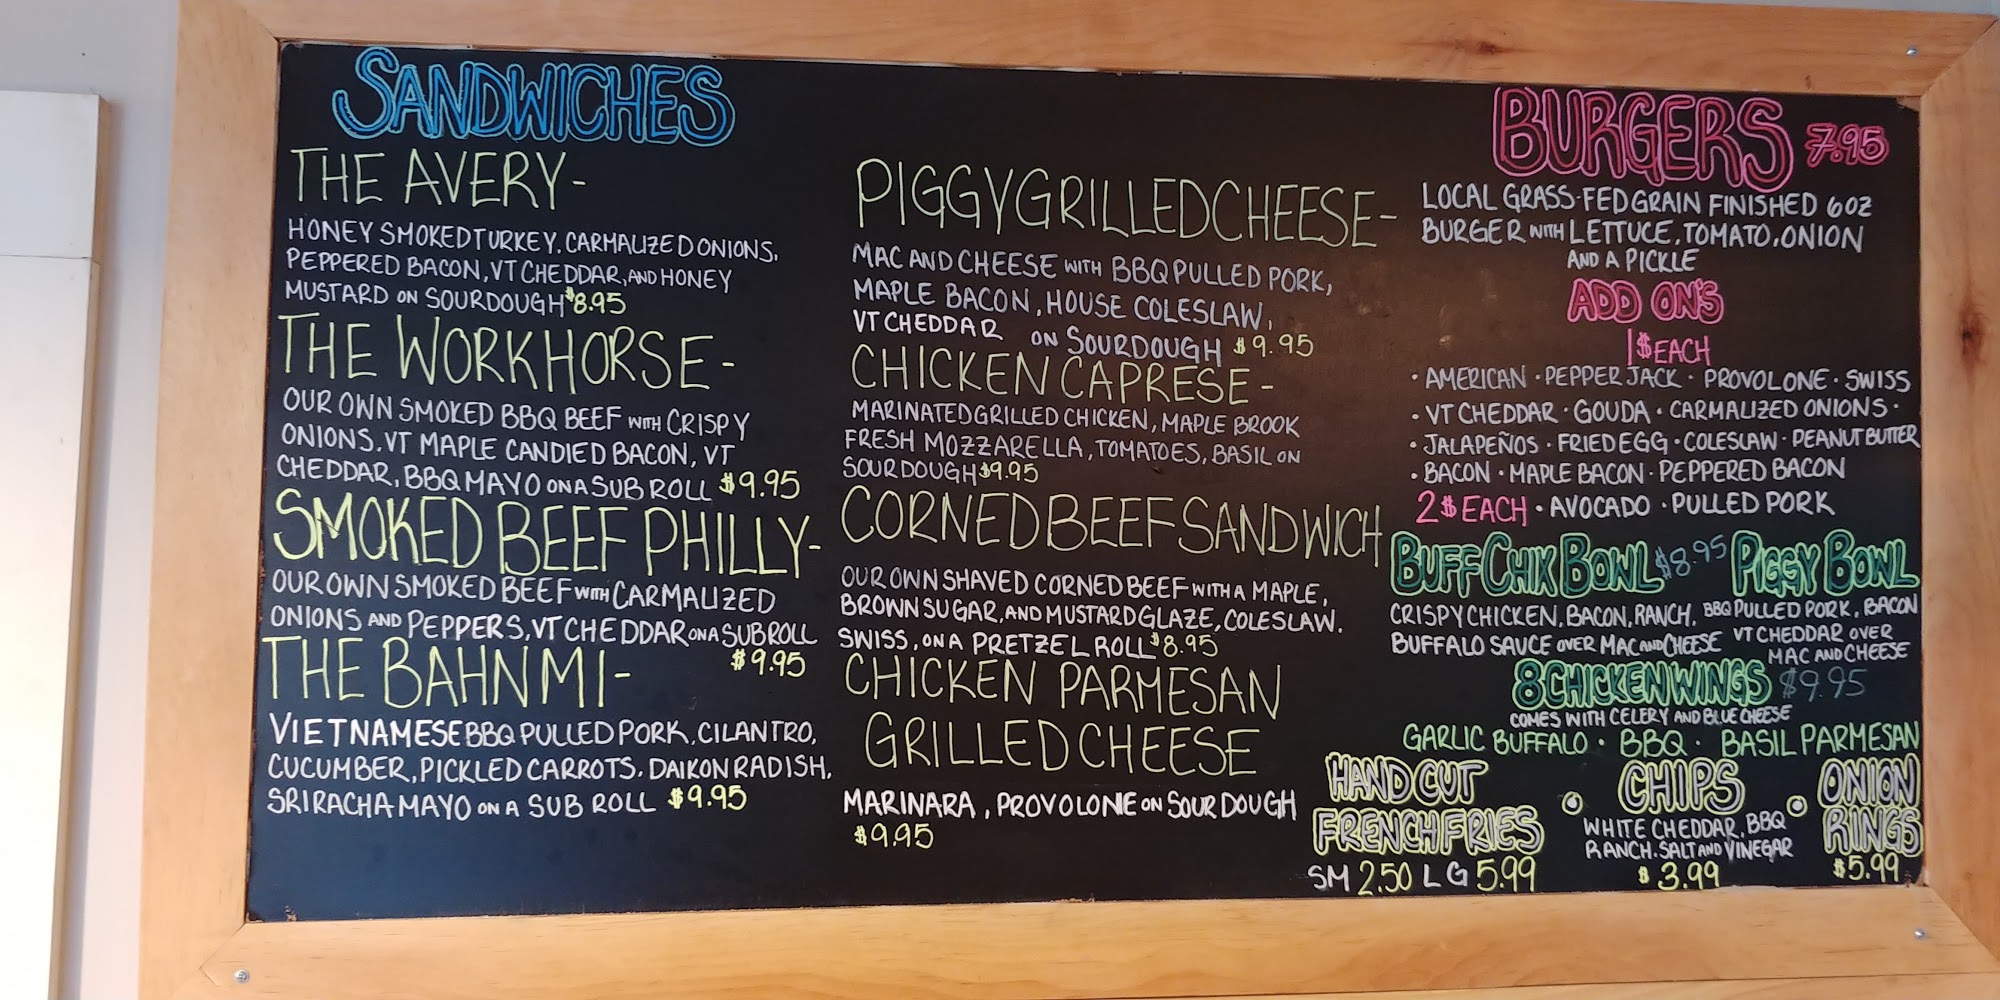 SANDWICHES
THE AVERY-
HONEY SMOKED TURKEY, CARMALIZED ONIONS,
PEPPERED BACON, VT CHEDDAR, AND HONEY
MUSTARD ON SOURDOUGH $8.95
THE WORKHORSE-
OUR OWN SMOKED BBQ BEEF WITH CRISPY
ONIONS, VT MAPLE CANDIED BACON, VT
CHEDDAR, BBQ MAYO ON A SUB ROLL $9.95
SMOKED BEEF PHILLY-
OUR OWN SMOKED BEEF WITH CARMALIZED
ONIONS AND PEPPERS, VT CHEDDAR ON A SUB ROLL
$9.95
THE BAHN MI-
VIETNAMESE BBQ PULLED PORK, CILANTRO,
CUCUMBER, PICKLED CARROTS, DAIKON RADISH,
SRIRACHA MAYO ON A SUB ROLL $9.95
PIGGY GRILLED CHEESE-
MAC AND CHEESE WITH BBQ PULLED PORK,
MAPLE BACON, HOUSE COLESLAW,
VT CHEDDAR ON SOURDOUGH $9.95
CHICKEN CAPRESE-
MARINATED GRILLED CHICKEN, MAPLE BROOK
FRESH MOZZARELLA, TOMATOES, BASIL ON
SOURDOUGH $9.95
CORNED BEEF SANDWICH
OUR OWN SHAVED CORNED BEEF WITH A MAPLE,
BROWN SUGAR, AND MUSTARD GLAZE, COLESLAW,
SWISS, ON A PRETZEL ROLL $8.95
CHICKEN PARMESAN
GRILLED CHEESE
MARINARA, PROVOLONE ON SOURDOUGH
$9.95
BURGERS 7.95
LOCAL GRASS-FED GRAIN FINISHED 6OZ
BURGER WITH LETTUCE, TOMATO, ONION
AND A PICKLE
ADD ON'S
1$ EACH
· AMERICAN · PEPPER JACK · PROVOLONE · SWISS
· VT CHEDDAR · GOUDA · CARMALIZED ONIONS ·
· JALAPEÑOS · FRIED EGG · COLESLAW · PEANUT BUTTER
· BACON · MAPLE BACON · PEPPERED BACON
2$ EACH · AVOCADO · PULLED PORK
BUFF CHIX BOWL $8.95
CRISPY CHICKEN, BACON, RANCH,
BUFFALO SAUCE OVER MAC AND CHEESE
PIGGY BOWL
BBQ PULLED PORK, BACON
VT CHEDDAR OVER
MAC AND CHEESE
8 CHICKEN WINGS $9.95
COMES WITH CELERY AND BLUE CHEESE
GARLIC BUFFALO · BBQ · BASIL PARMESAN
HAND CUT
FRENCH FRIES
SM 2.50 LG 5.99
CHIPS
WHITE CHEDDAR, BBQ
RANCH, SALT AND VINEGAR
$3.99
ONION
RINGS
$5.99